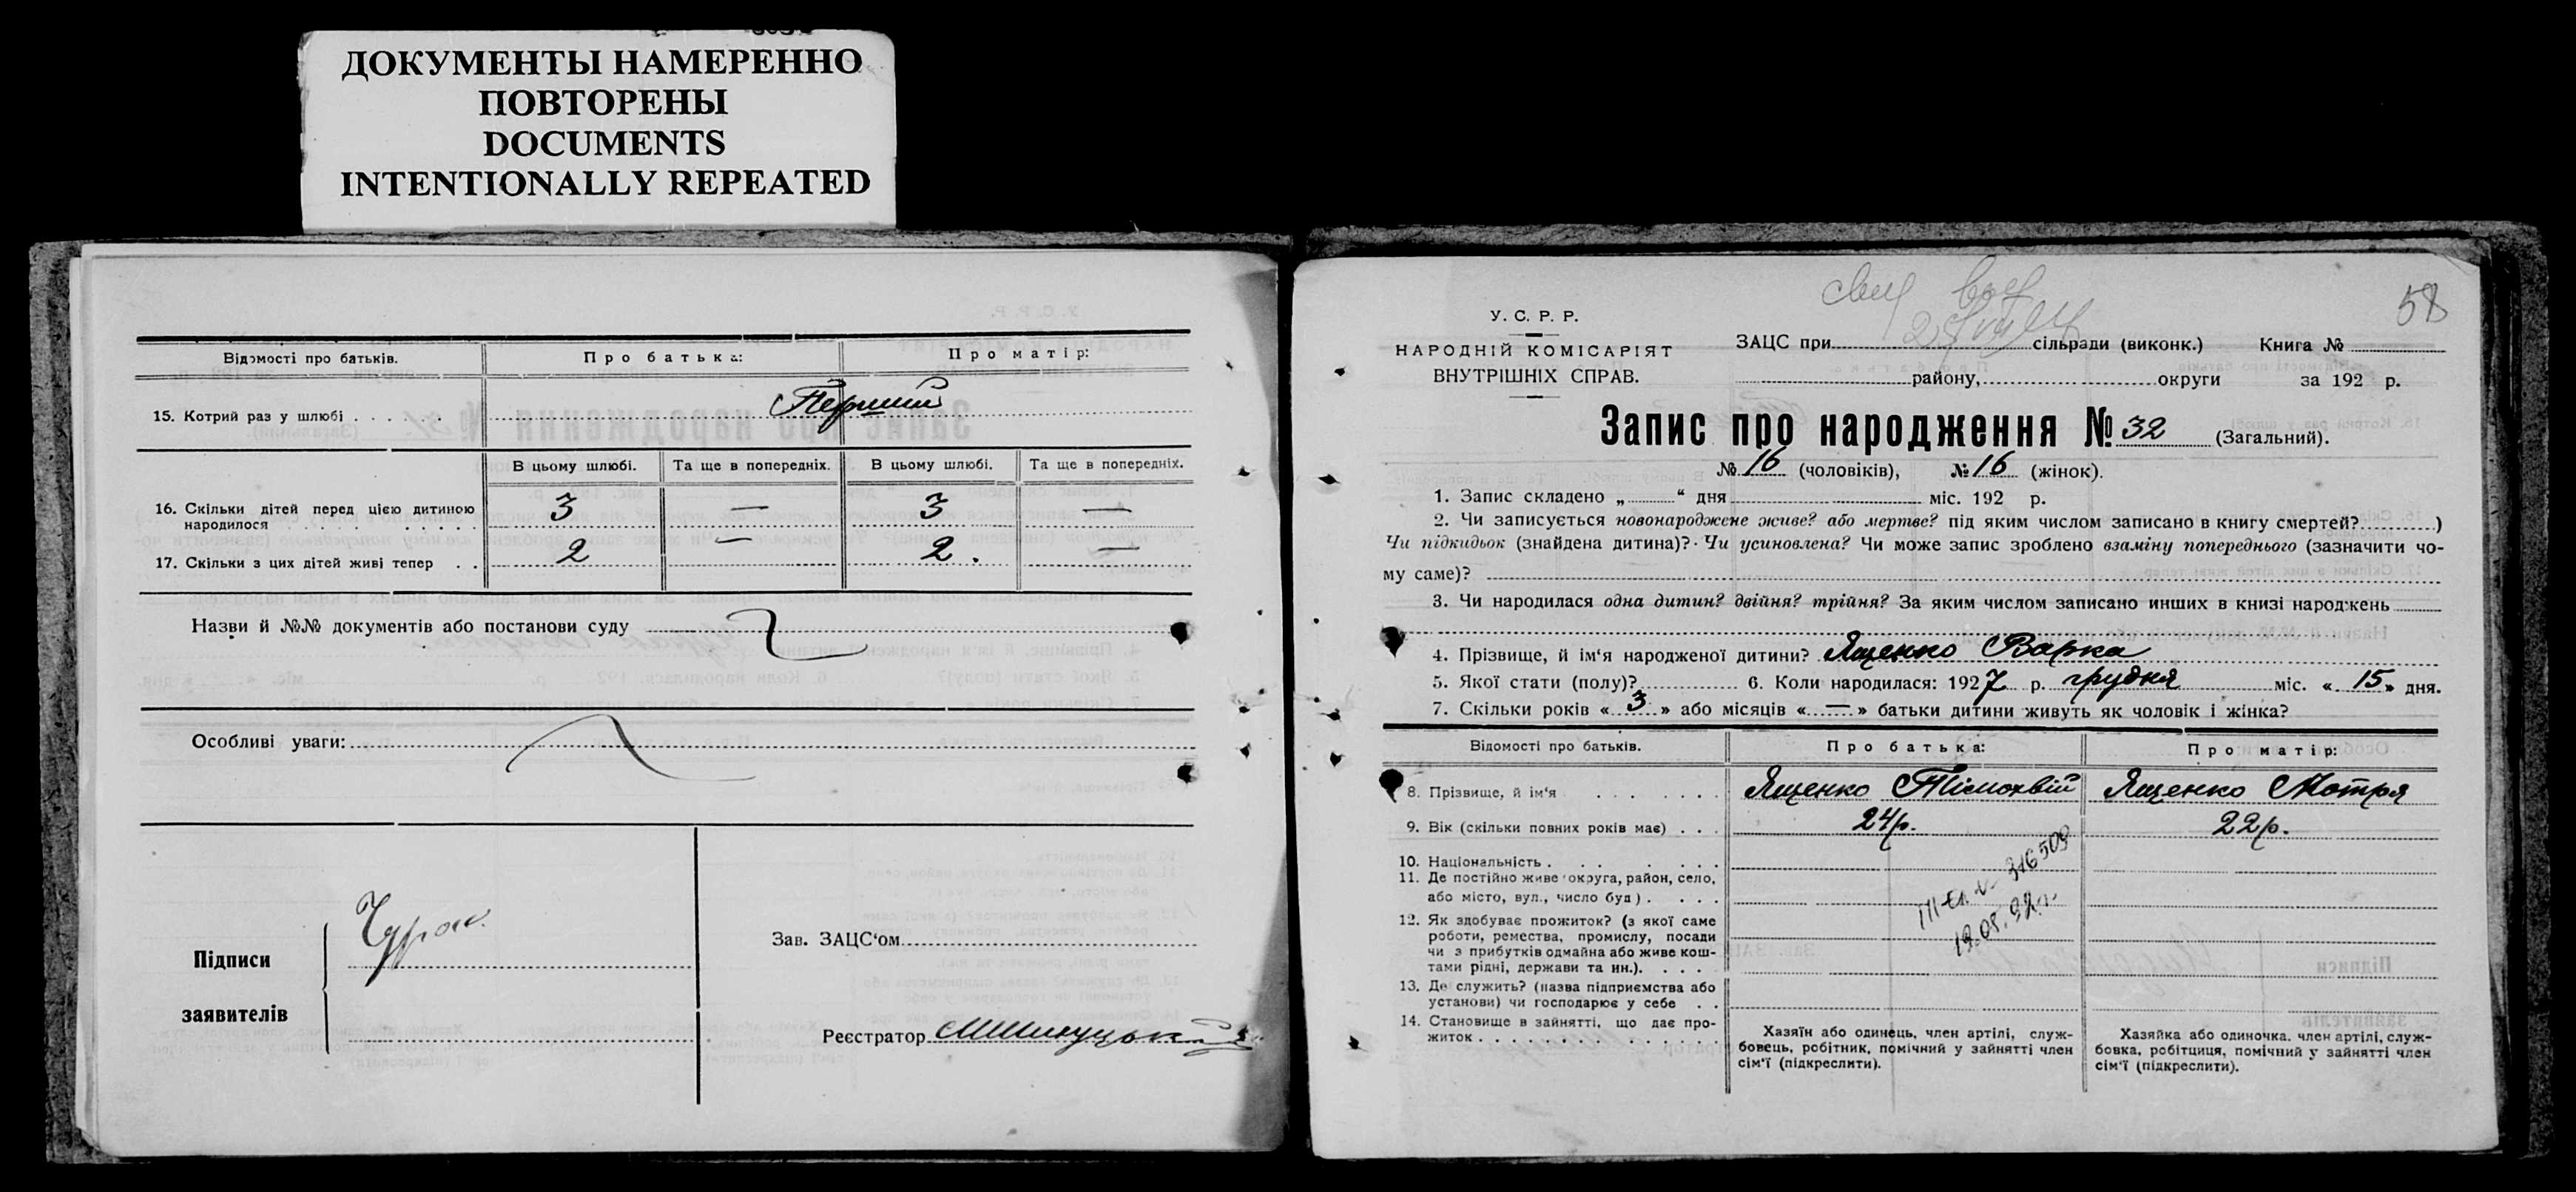 ДОКУМЕНТЫ НАМЕРЕННО
ПОВТОРЕНЫ
DOCUMENTS
INTENTIONALLY REPEATED
Відомості про батьків.
Про батька:
Про матір:
15. Котрий раз у шлюбі
Перший
В цьому шлюбі.
Та ще в попередніх.
В цьому шлюбі.
Та ще в попередніх.
16. Скільки дітей перед цією дитиною
народилося
3 — 3 —
17. Скільки з цих дітей живі тепер
2 — 2. —
Назви й №№ документів або постанови суду
Особливі уваги:
Підписи
заявителів
Зав. ЗАЦС‘ом
Реєстратор
58
У. С. Р. Р.
НАРОДНІЙ КОМІСАРІЯТ
ВНУТРІШНІХ СПРАВ.
ЗАЦС при сільради (виконк.) Книга №
району, округи за 192 р.
Запис про народження № 32 (Загальний).
№ 16 (чоловіків), № 16 (жінок).
1. Запис складено „ “ дня міс. 192 р.
2. Чи записується новонароджене живе? або мертве? під яким числом записано в книгу смертей? )
Чи підкидьок (знайдена дитина)? Чи усиновлена? Чи може запис зроблено взаміну попереднього (зазначити чо-
му саме)?
3. Чи народилася одна дитин? двійня? трійня? За яким числом записано инших в книзі народжень
4. Прізвище, й ім‘я народженої дитини? Ященко Варка
5. Якої стати (полу)? 6. Коли народилася: 1927 р. грудня міс. « 15 » дня.
7. Скільки років « 3 » або місяців « — » батьки дитини живуть як чоловік і жінка?
Відомості про батьків.
Про батька:
Про матір:
8. Прізвище, й ім‘я
Ященко Тімохвій
Ященко Мотря
9. Вік (скільки повних років має)
24р.
22р.
10. Національність
11. Де постійно живе (округа, район, село,
або місто, вул., число буд)
316509
19.08.92 г.
12. Як здобуває прожиток? (з якої саме
роботи, ремества, промислу, посади
чи з прибутків одмайна або живе кош-
тами рідні, держави та ин.).
13. Де служить? (назва підприємства або
установи) чи господарює у себе
14. Становище в зайнятті, що дає про-
житок
Хазяїн або одинець, член артілі, служ-
бовець, робітник, помічний у зайнятті член
сім‘ї (підкреслити).
Хазяйка або одиночка. член артілі, служ-
бовка, робітциця, помічний у зайнятті член
сім‘ї (підкреслити).